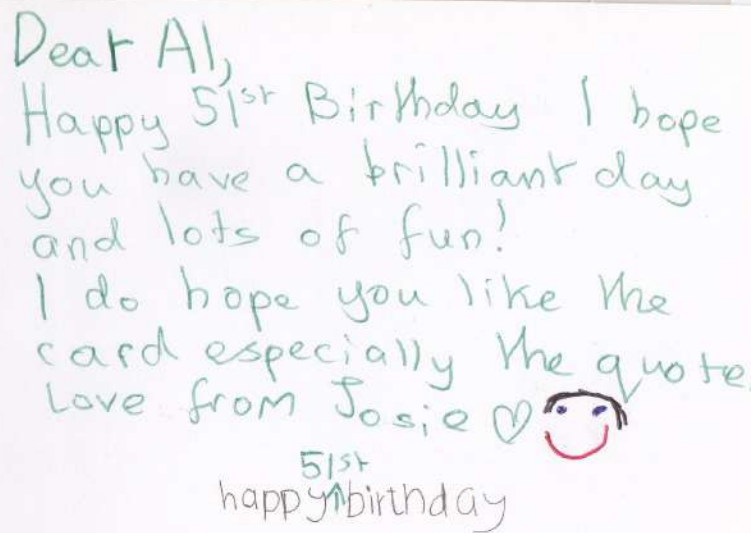 Dear Al,
Happy 51st Birthday I hope
you have a brilliant day
and lots of fun!
I do hope you like the
card especially the quote.
Love from Josie ♡
51st
happy↑birthday